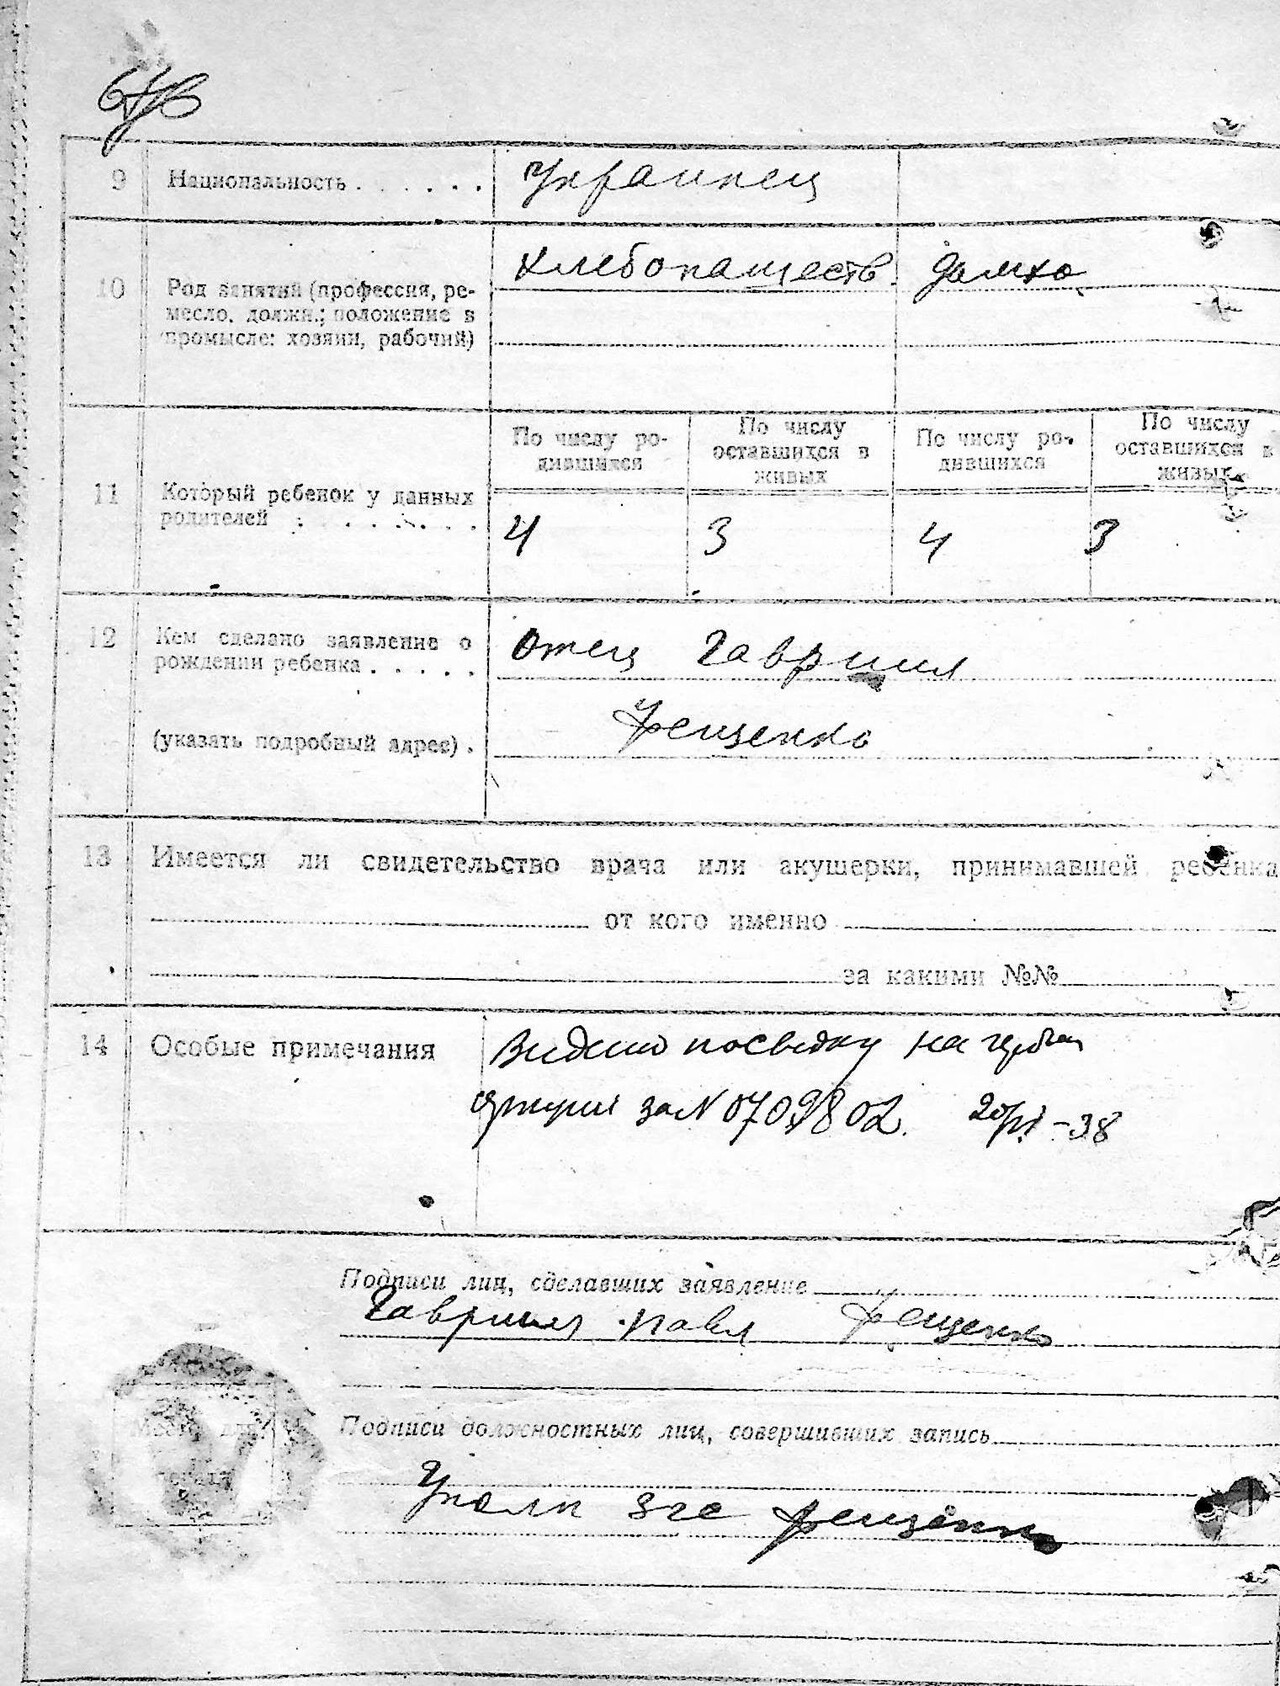 9 Национальность . . . . . . Украинец
10 Род занятий (профессия, ре-
месло, должн.; положение в
промысле: хозяин, рабочий)
Хлебопашеств. домхо
11 Который ребенок у данных
родителей : . . . . . . .
По числу ро-
дившихся
По числу
оставшихся в
живых
По числу ро-
дившихся
По числу
оставшихся в
живых
4 3 4 3
12 Кем сделано заявление о
рождении ребенка . . . . .
(указать подробный адрес) .
Отец Гавриил
Грещенко
13 Имеется ли свидетельство врача или акушерки, принимавшей ребенка
от кого именно
за какими №№
14 Особые примечания
Видано посвідку на
за N 0709802. 20/VI-38
Подписи лиц, сделавших заявление
Гавриил Павл Грещенко
Место для
печати
Подписи должностных лиц, совершивших запись
Уполн загс Грещенко